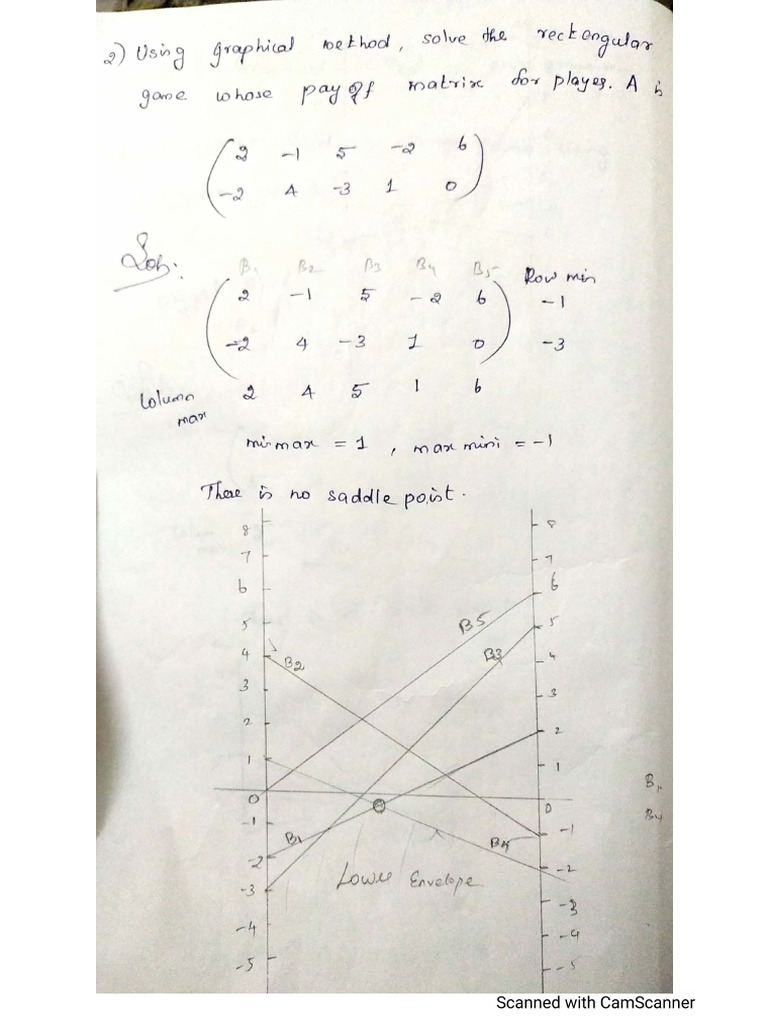 2) Using graphical method, solve the rectangular
game whose pay off matrix for player. A is
2 -1 5 -2 6
-2 4 -3 1 0
Soln:
B1 B2 B3 B4 B5 Row min
2 -1 5 -2 6 -1
-2 4 -3 1 0 -3
Column max 2 4 5 1 6
minmax = 1 , maxmini = -1
There is no saddle point.
8 8
7 7
6 6
B5
5 5
4 B2 B3 4
3 3
2 2
1 1
B1
0 0
B4
-1 -1
B1 B4
-2 -2
Lower Envelope
-3 -3
-4 -4
-5 -5
Scanned with CamScanner